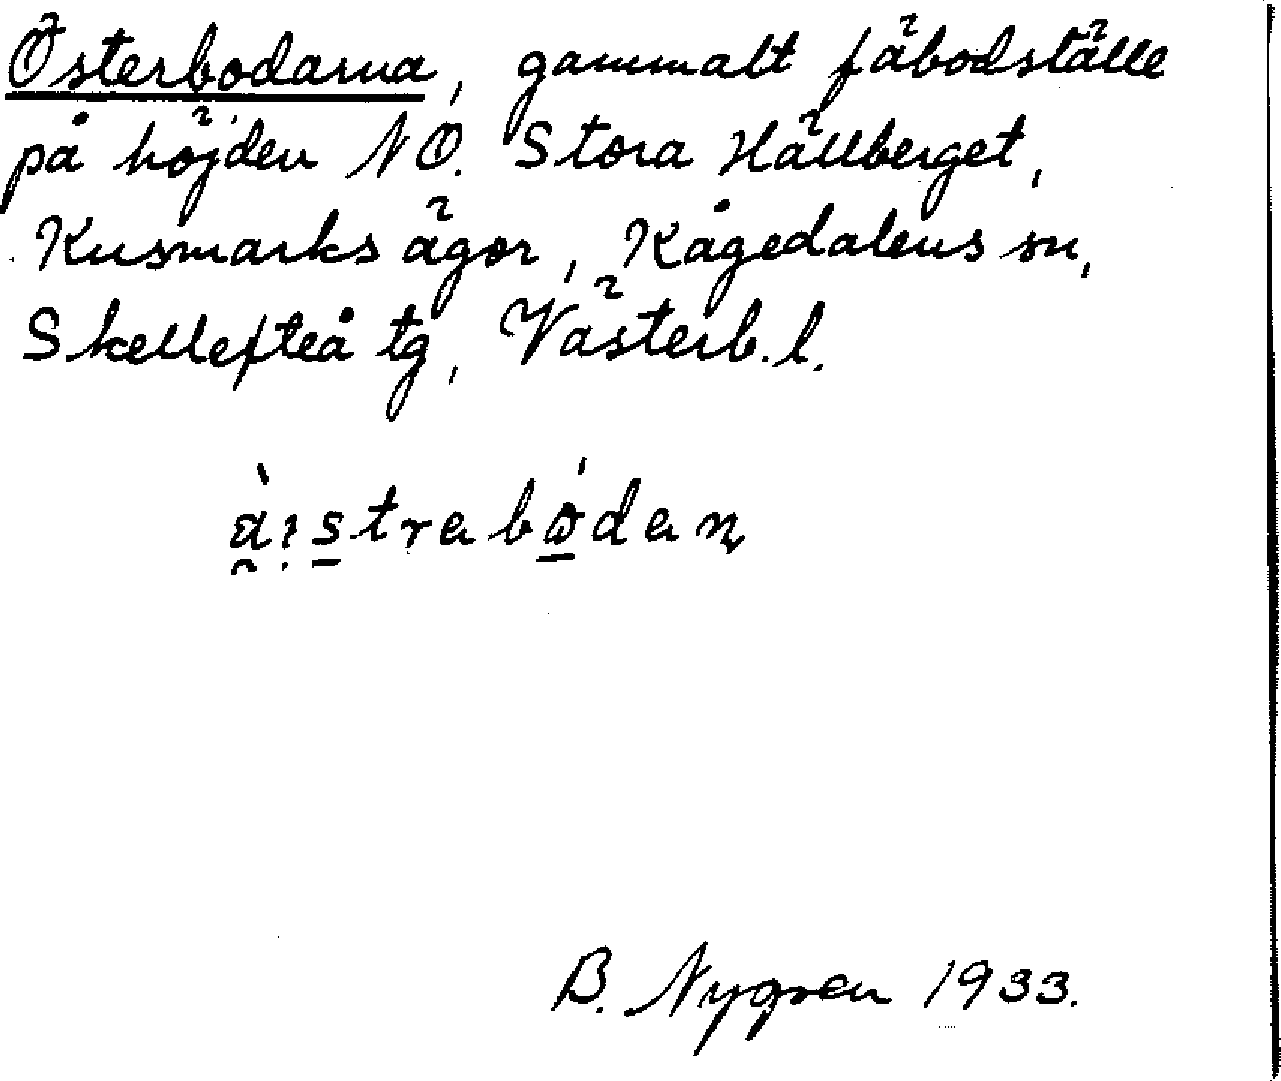 Österbodarna, gammalt fäbodställe
på höjden NÖ. Stora Hällberget,
Kusmarks ägor, Kågedalens sn,
Skellefteå tg, Västerb. l.
B. Nygren 1933.